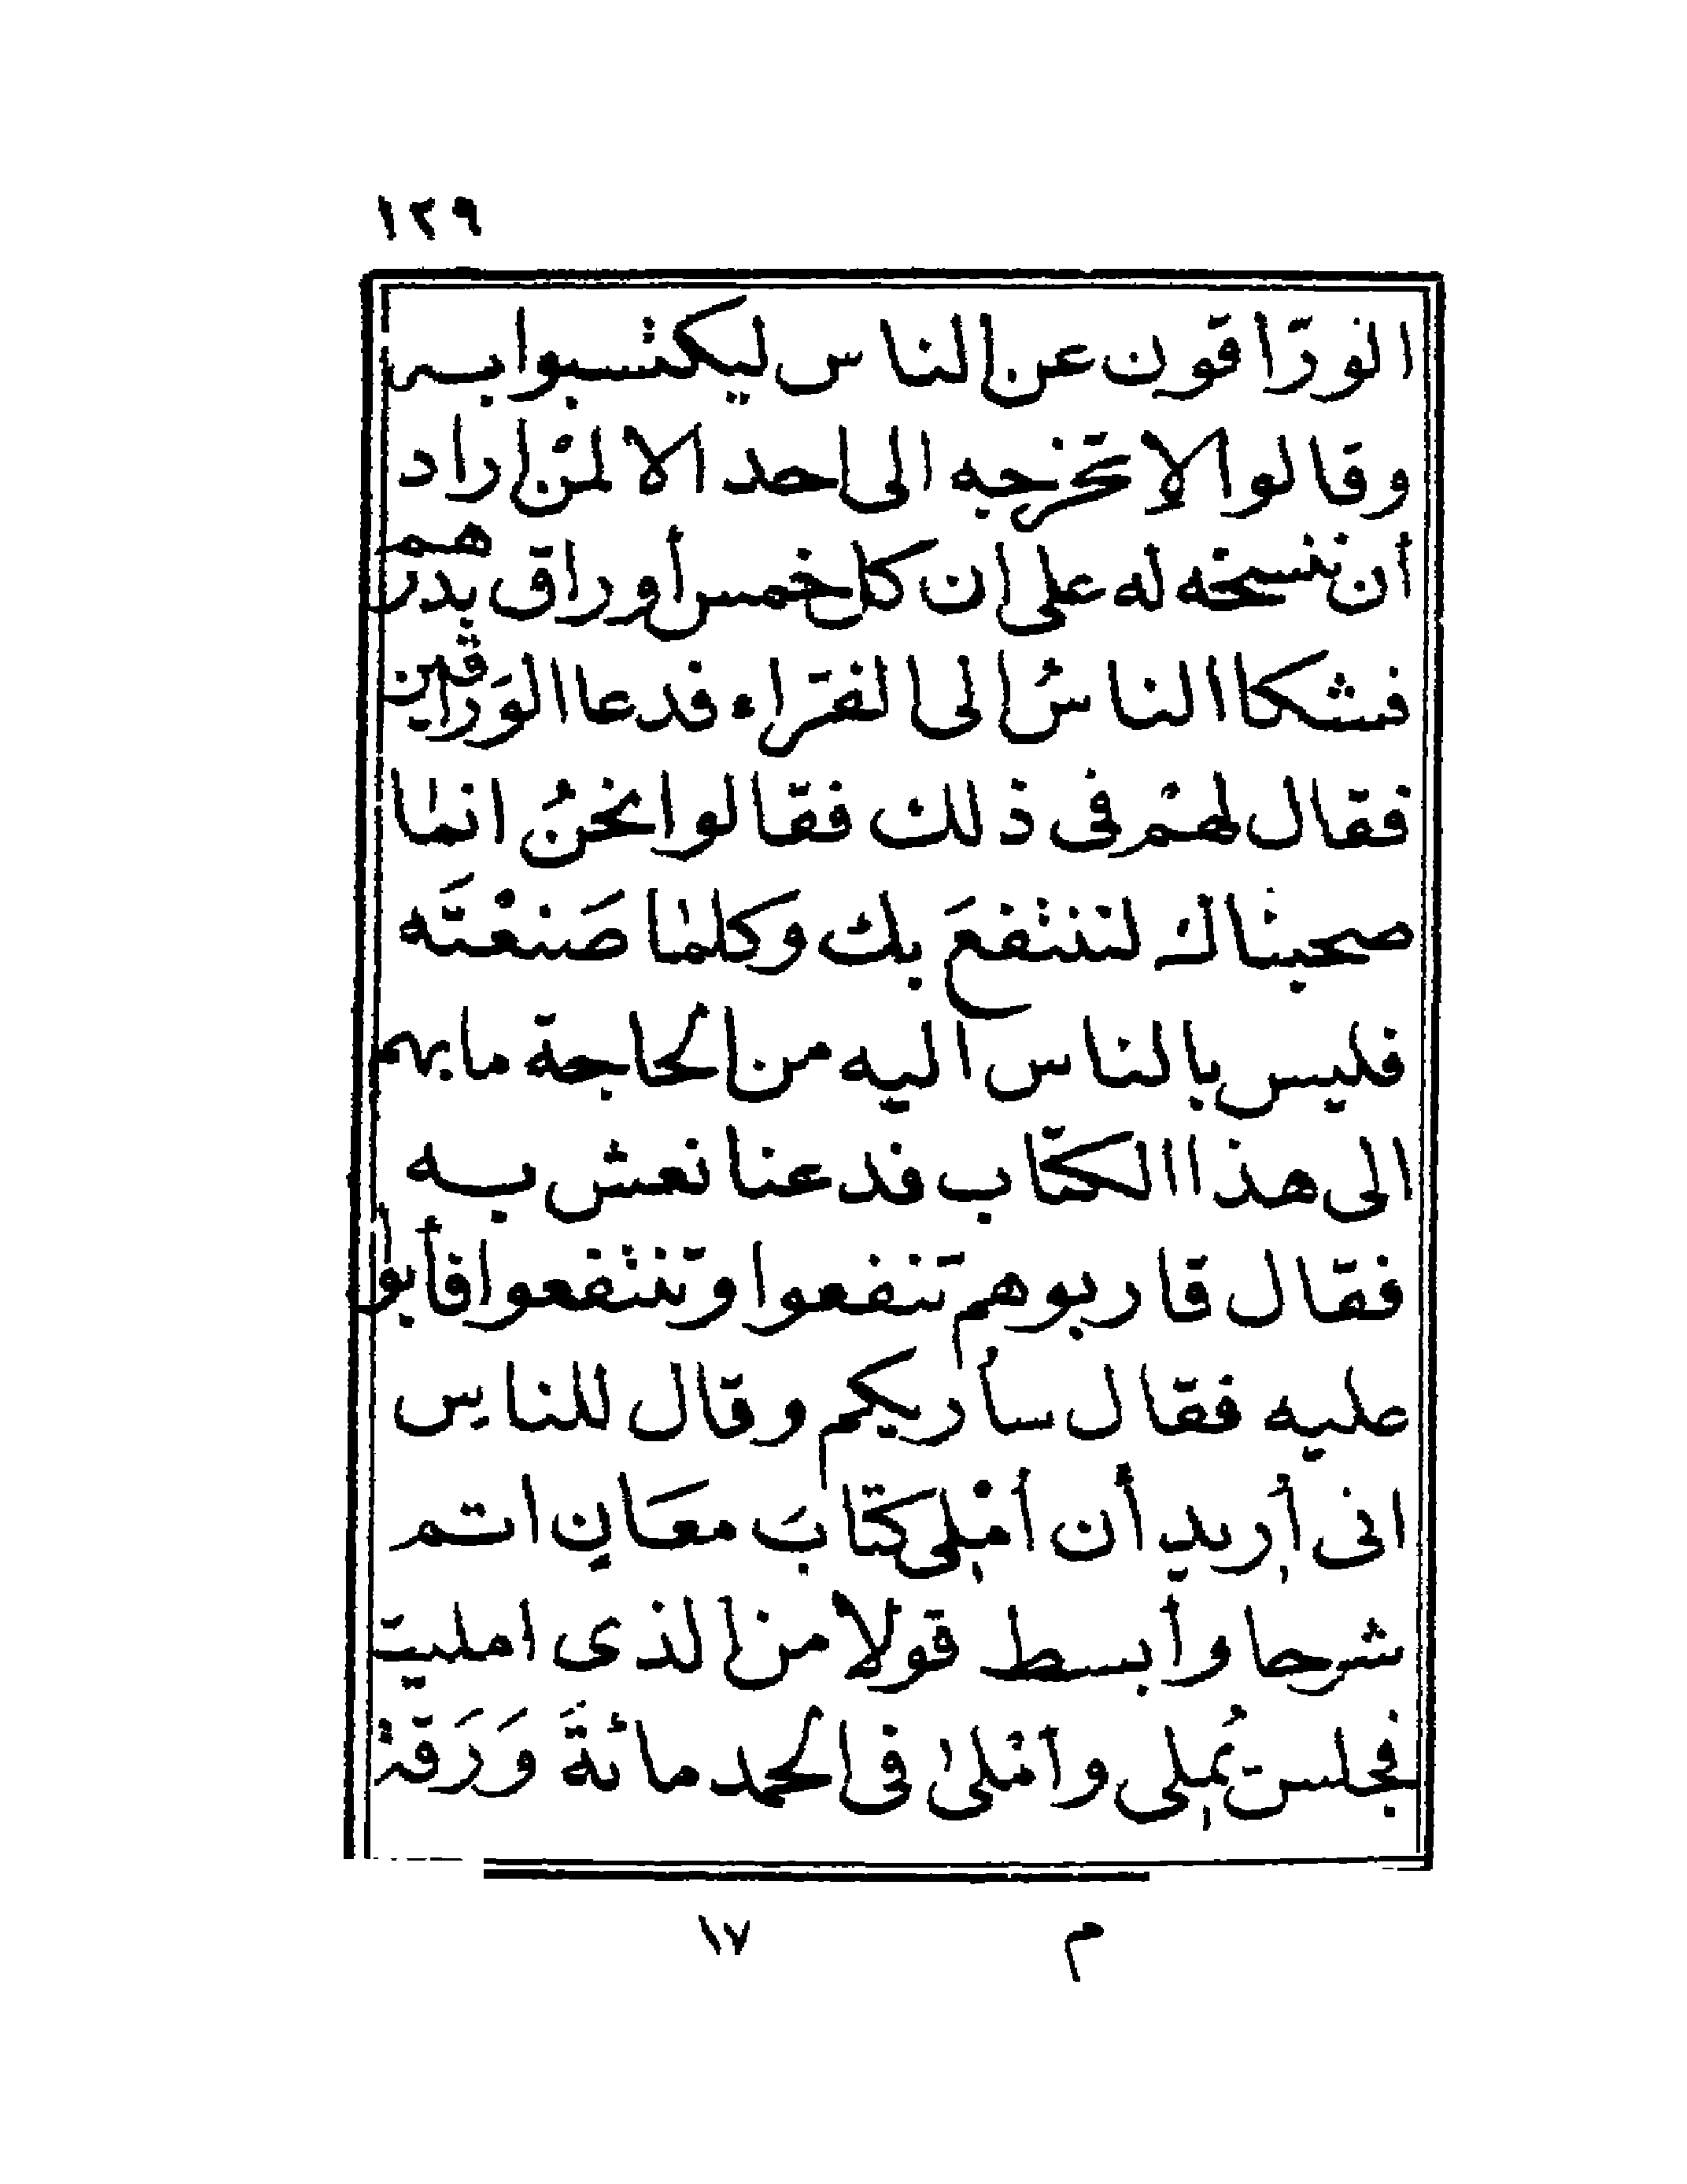 ١٢٩
الورّاقون عن الناس ليكتسبوا به
وقالوا لا نخرجه الى احد الا لمنْ اراد
أن ننسخه له على ان كل خمس أوراق بدرهم
فشكا الناسُ الى الفرّاء فدعا الوَراقين
فقال لهمْ فى ذلك فقالوا نحنُ انما
صحبناك لننتفعَ بك وكلما صَنعْتَه
فليس بالناس اليه من الحاجة ما بهم
الى هذا الكتاب فدعنا نعش به
فقال قاربوهم تنفعوا وتنتفعوا فأبوا
عليه فقال سأريكم وقال للناس
انى أريد أن أمْلِى كتابَ معَانٍ اتم
شرحا وأبسط قولا من الذى امليت
فجلس يُملِى وأمْلىٰ فى الحمد مائةَ وَرَقةْ
م ١٧